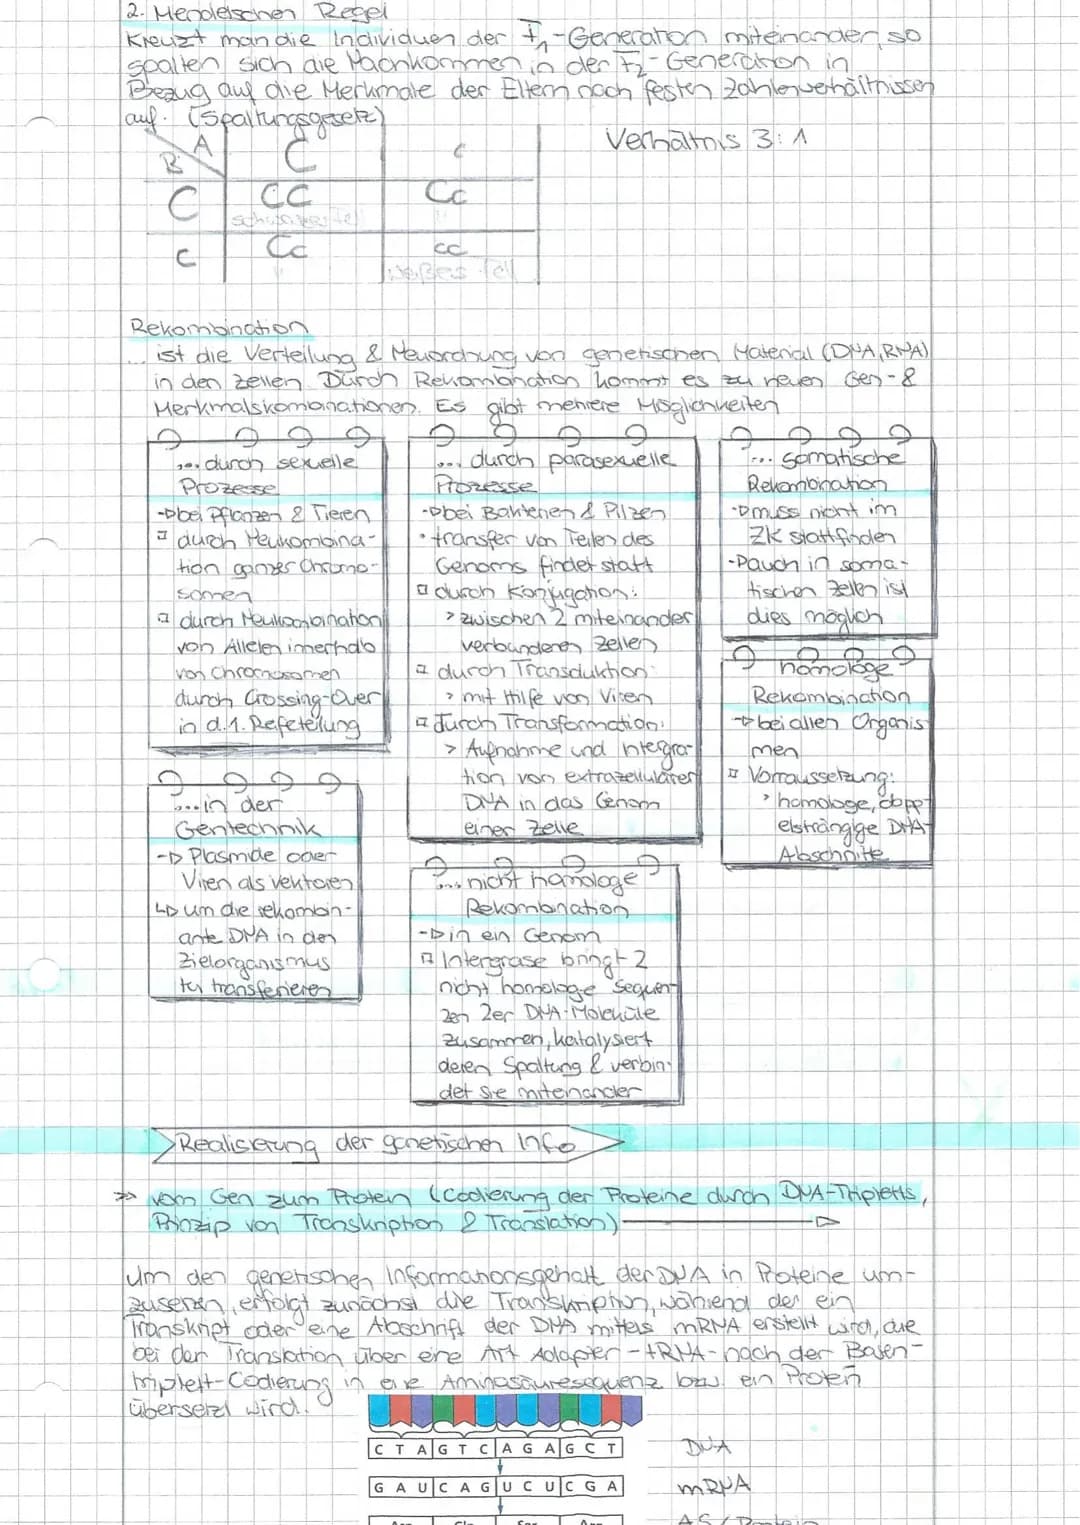 2. Mendelschen Regel
Kreuzt man die Individuen der F1-Generation miteinander, so
spalten sich die Nachkommen in der F2-Generation in
Bezug auf die Merkmale der Eltern nach festen Zahlenverhältnissen
auf. (Spaltungsgesetz)
Verhältnis 3:1
A
B
C c
C CC Cc
schwarzes Fell "
c Cc cc
" weißes Fell
Rekombination
... ist die Verteilung & Neuordnung von genetischen Material (DNA, RNA)
in den Zellen. Durch Rekombination kommt es zu neuen Gen- &
Merkmalskombinationen. Es gibt mehrere Möglichkeiten
... durch sexuelle
Prozesse
-▷ bei Pflanzen & Tieren
□ durch Neukombina-
tion ganzer Chromo-
somen
□ durch Neukombination
von Allelen innerhalb
von Chromosomen
durch Crossing-Over
in d. 1. Refeteilung
... durch parasexuelle
Prozesse
-▷ bei Bakterien & Pilzen
• transfer von Teilen des
Genoms findet statt
□ durch Konjugation:
> zwischen 2 miteinander
verbundenen Zellen
□ durch Transduktion:
> mit Hilfe von Viren
□ durch Transformation:
> Aufnahme und Integra-
tion von extrazellulärer
DNA in das Genom
einer Zelle
... somatische
Rekombination
-▷ muss nicht im
ZK stattfinden
-▷ auch in soma-
tischen Zellen ist
dies möglich
homologe
Rekombination
-▷ bei allen Organis
men
□ Vorraussetzung:
> homologe, dopp-
elsträngige DNA-
Abschnitte
... in der
Gentechnik
-▷ Plasmide oder
Viren als vektoren
↳▷ um die rekombin-
ante DNA in den
Zielorganismus
zu transferieren
... nicht homologe
Rekombination
-▷ in ein Genom
□ Intergrase bringt 2
nicht homologe Sequen-
zen 2er DNA-Moleküle
zusammen, katalysiert
deren Spaltung & verbin-
det sie miteinander
Realisierung der genetischen Info
>> vom Gen zum Protein (Codierung der Proteine durch DNA-Tripletts,
Prinzip von Transkription & Translation)
Um den genetischen Informationsgehalt der DNA in Proteine um-
zusetzen, erfolgt zunächst die Transkription, während der ein
Transkript oder eine Abschrift der DNA mittels mRNA erstellt wird, die
bei der Translation über eine Art Adapter - tRNA - nach der Basen-
triplett-Codierung in eine Aminosäuresequenz bzw. ein Protein
übersetzt wird.
C T A G T C A G A G C T DNA
G A U C A G U C U C G A mRNA
AS / Protein